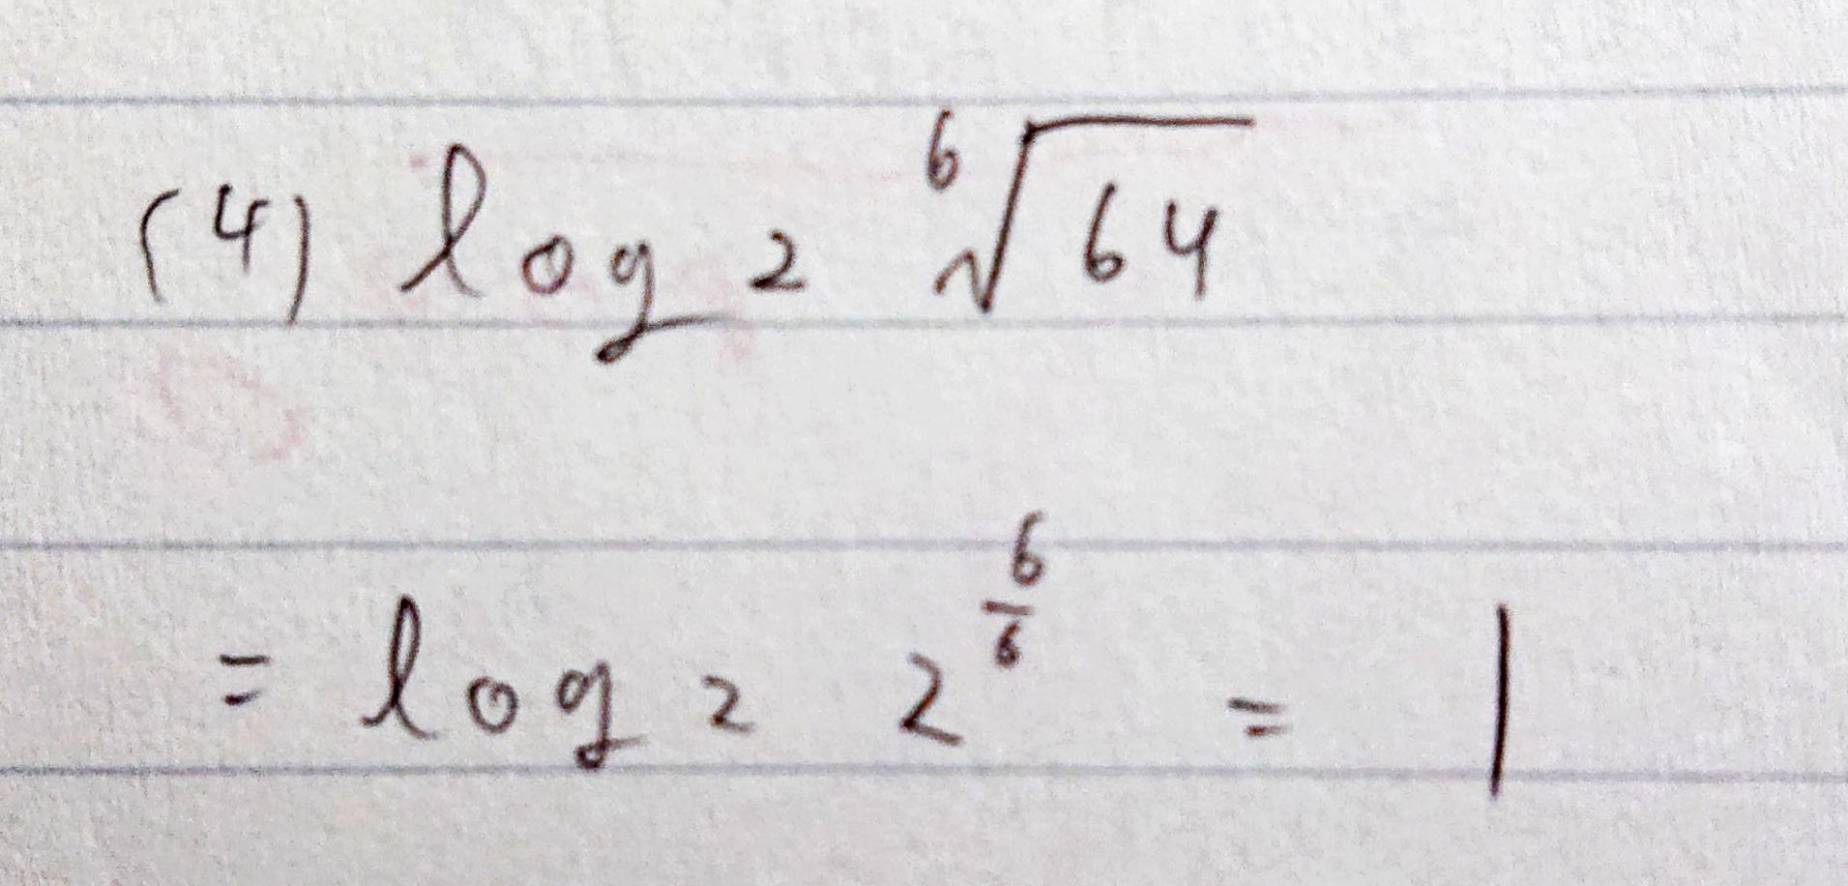 (4) log₂ ⁶√64
= log₂ 2^(6/6) = 1